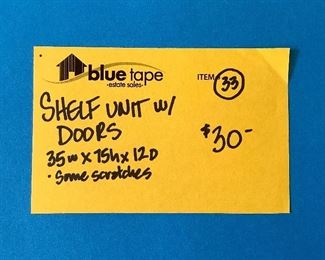 blue tape
-estate sales-
ITEM# 33
SHELF UNIT W/
DOORS
$30-
35w x 75h x 12D
• Some scratches